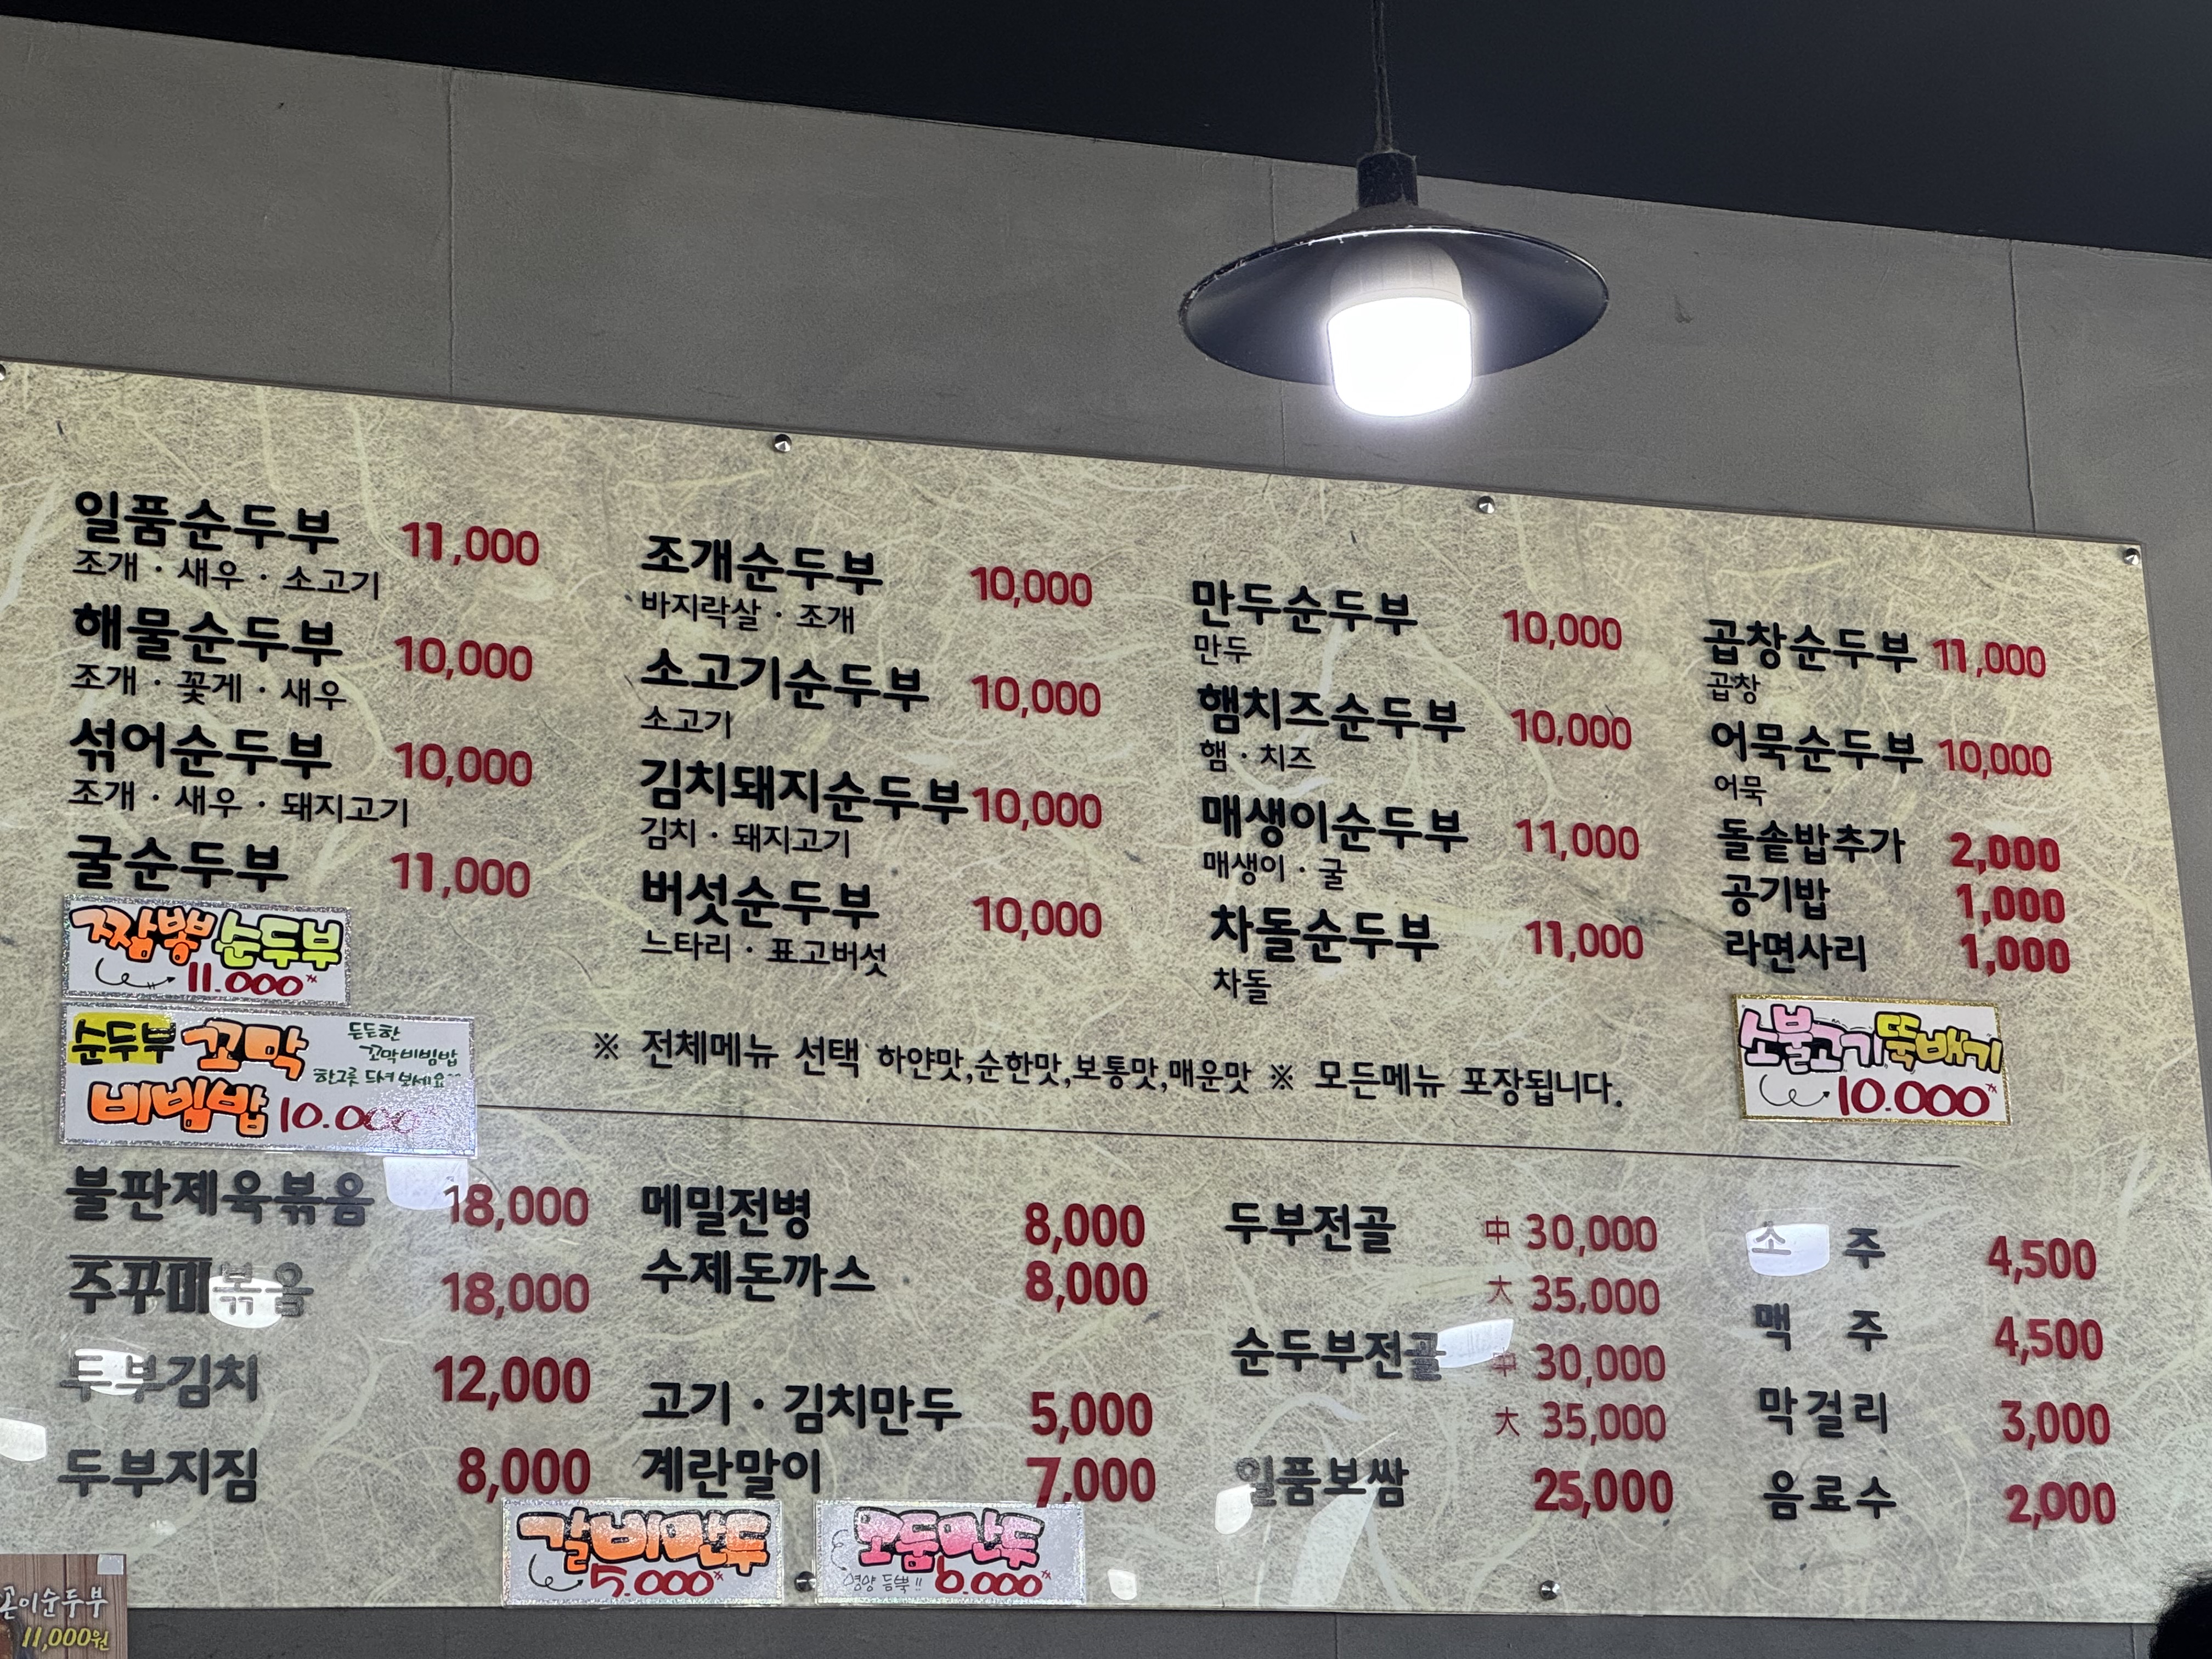 일품순두부 11,000
조개 · 새우 · 소고기
해물순두부 10,000
조개 · 꽃게 · 새우
섞어순두부 10,000
조개 · 새우 · 돼지고기
굴순두부 11,000
짬뽕순두부
11.000
순두부 꼬막
비빔밥 10.000
든든한
꼬막비빔밥
한그릇 드셔보세요
조개순두부 10,000
바지락살 · 조개
소고기순두부 10,000
소고기
김치돼지순두부 10,000
김치 · 돼지고기
버섯순두부 10,000
느타리 · 표고버섯
만두순두부 10,000
만두
햄치즈순두부 10,000
햄 · 치즈
매생이순두부 11,000
매생이 · 굴
차돌순두부 11,000
차돌
곱창순두부 11,000
곱창
어묵순두부 10,000
어묵
돌솥밥추가 2,000
공기밥 1,000
라면사리 1,000
소불고기뚝배기
10.000
※ 전체메뉴 선택 하얀맛,순한맛,보통맛,매운맛 ※ 모든메뉴 포장됩니다.
불판제육볶음 18,000
주꾸미볶음 18,000
두부김치 12,000
두부지짐 8,000
메밀전병 8,000
수제돈까스 8,000
고기 · 김치만두 5,000
계란말이 7,000
갈비만두
5.000
모둠만두
영양 듬뿍!! 6.000
두부전골 中 30,000
大 35,000
순두부전골 中 30,000
大 35,000
일품보쌈 25,000
소 주 4,500
맥 주 4,500
막걸리 3,000
음료수 2,000
곤이순두부
11,000원